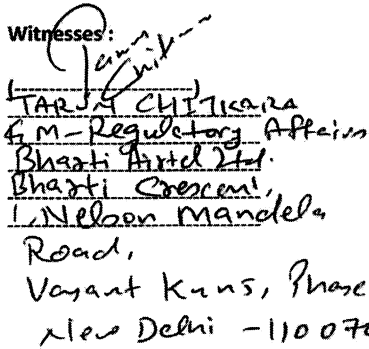 Witnesses :
(TARUN CHITKARA)
G M - Regulatory Affairs
Bharti Airtel Ltd.
Bharti Crescent,
1, Nelson Mandela
Road,
Vasant Kunj, Phase
New Delhi - 110070